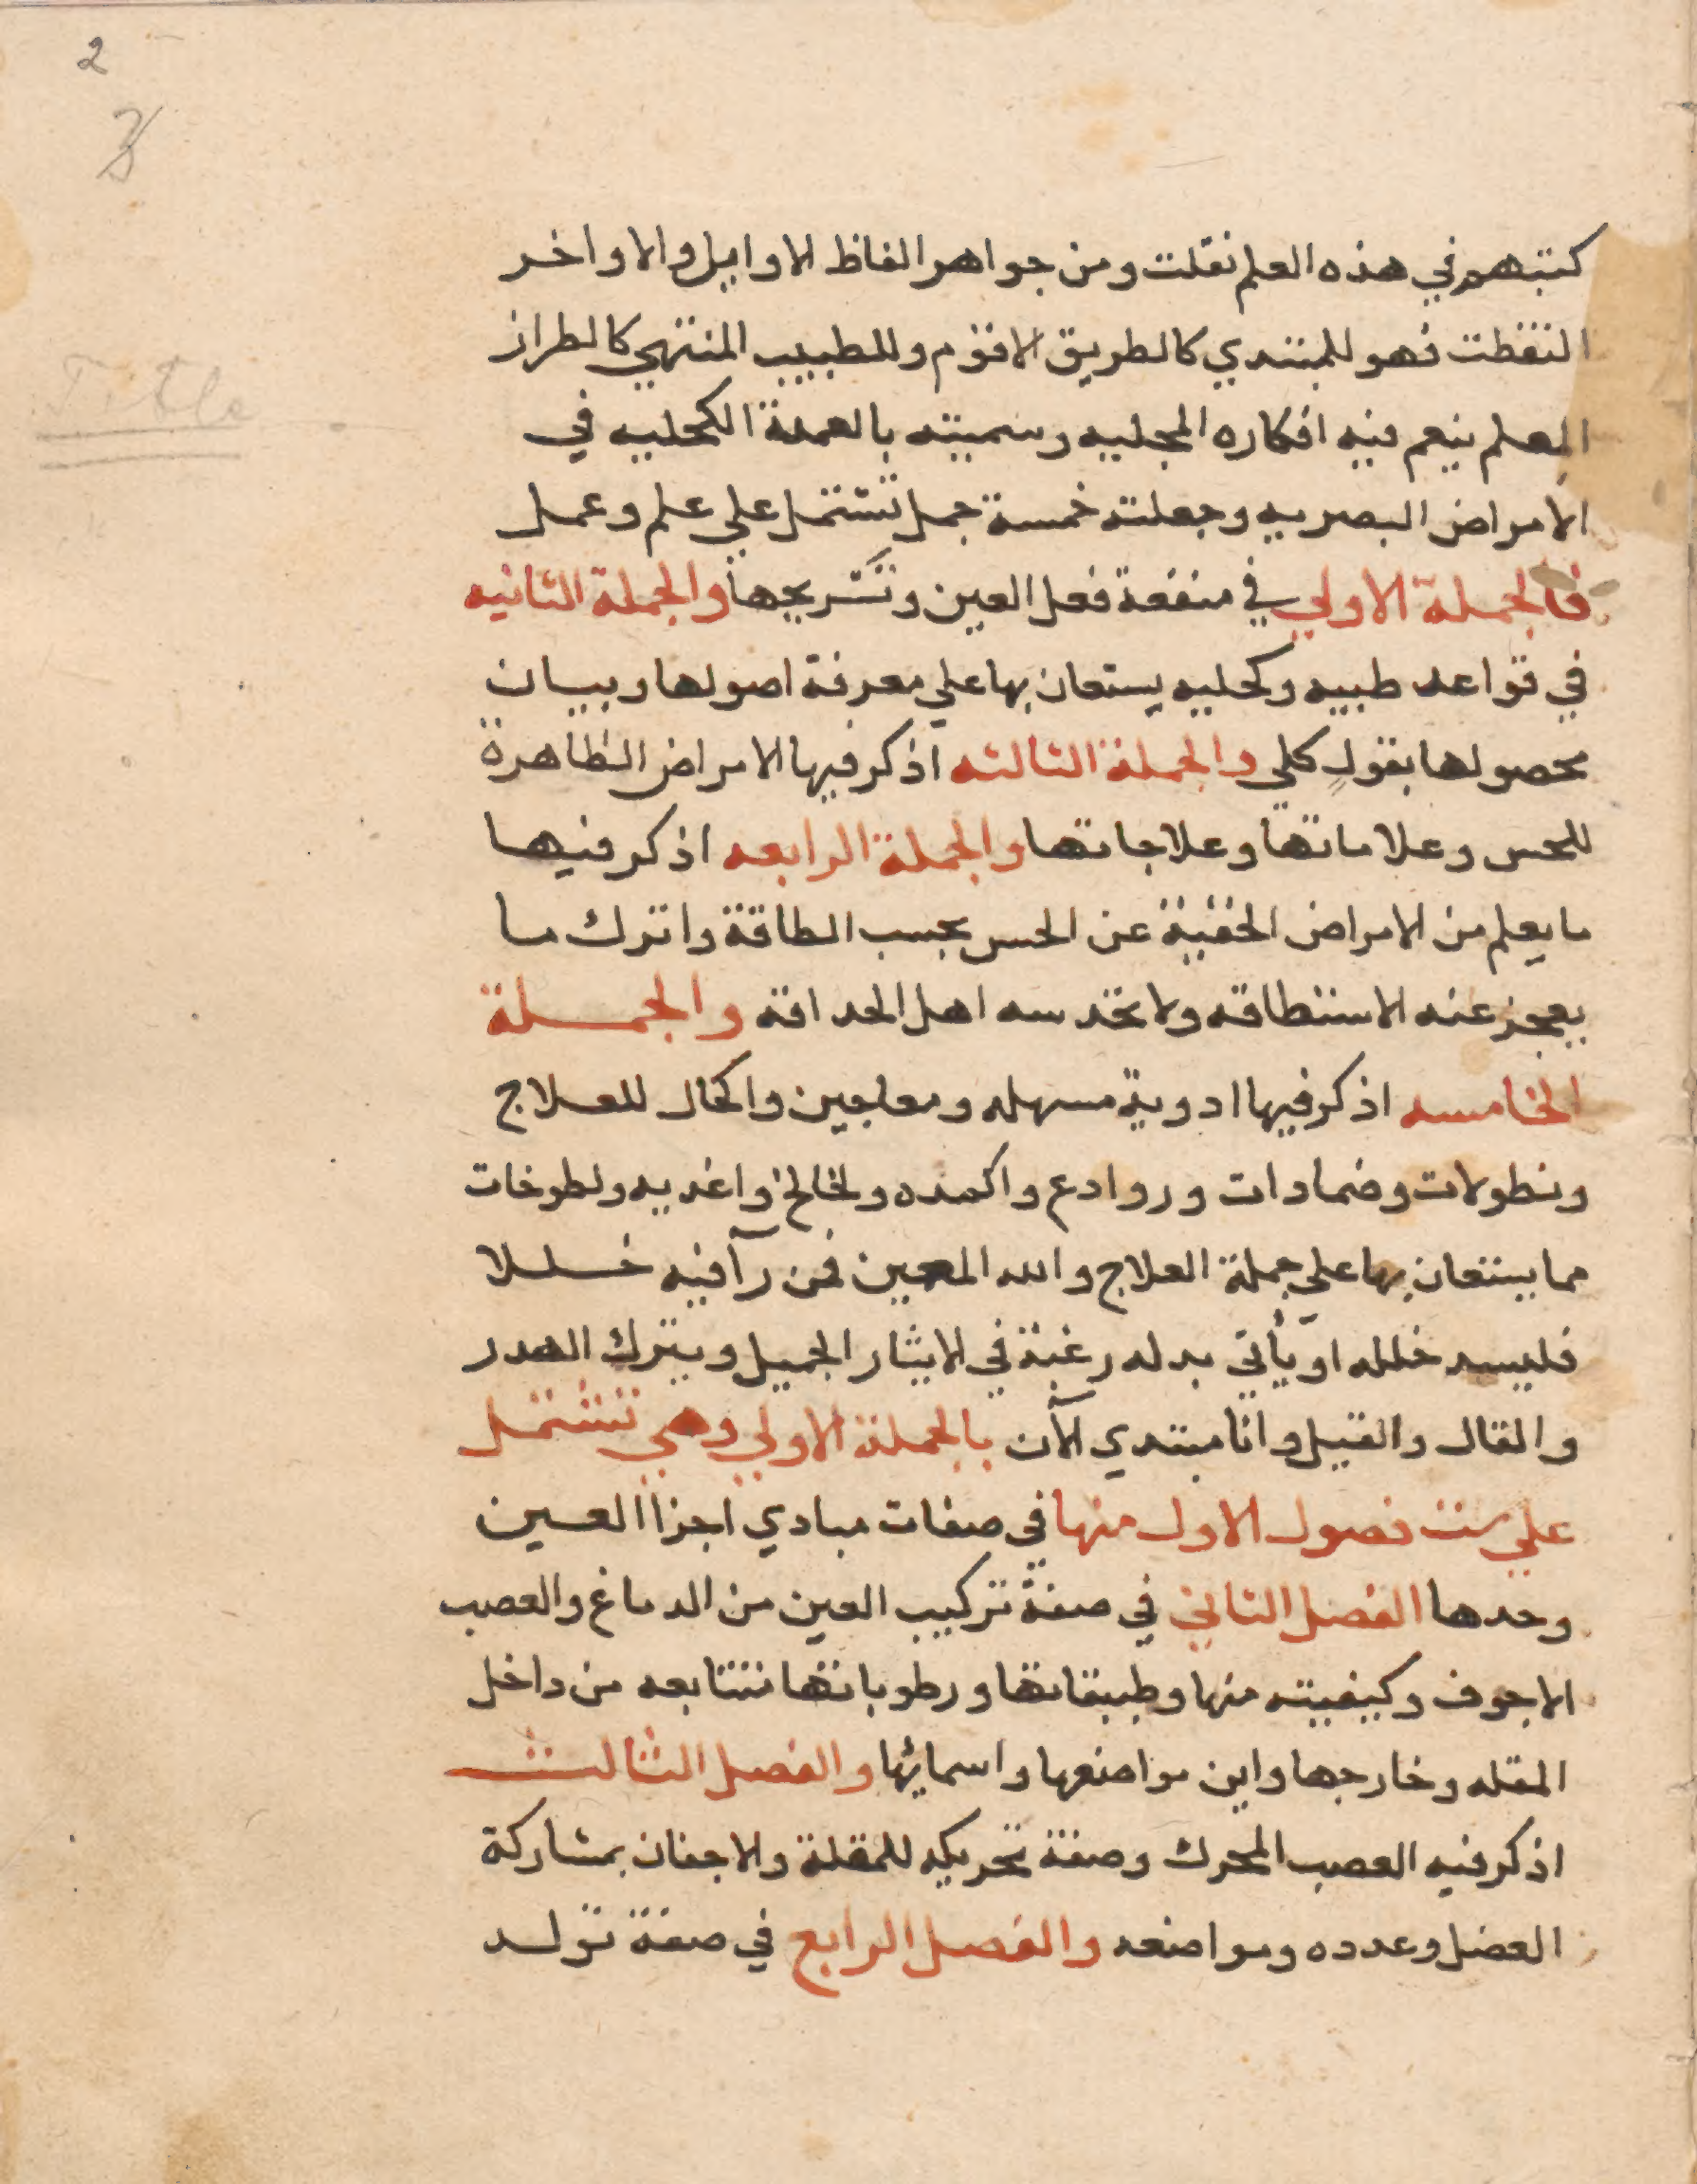 2
3
Title
كتبهم في هذه العلم نقلت ومن جواهر الفاظ الاوايل والاواخر
التقطت فهو للمبتدي كالطريق الاقوم وللطبيب المنتهي كالطراز
المعلم ينعم فيه افكاره المجليه وسميته بالعمدة الكحليه في
الامراض البصريه وجعلته خمسة جمل تشتمل علي علم وعمل
فالجملة الاولي في منفعة فعل العين وتشريحها والجملة الثانيه
في قواعد طبيه وكحليه يستعان بها علي معرفة اصولها وبيان
محصولها بقول كلي والجملة الثالثه اذكر فيها الامراض الظاهرة
للحس وعلاماتها وعلاجاتها والجملة الرابعه اذكر فيها
ما يعلم من الامراض الخفية عن الحس بحسب الطاقة واترك ما
يعجز عنه الاستطاقه ولا تحدسه اهل الحداقه والجملة
الخامسه اذكر فيها ادوية مسهله ومعاجين واكحال للعلاج
ونطولات وضمادات وروادع واكمده ولخالخ واغديه ولطوخات
مما يستعان بها علي جملة العلاج والله المعين فمن رآ فيه خللا
فليسد خلله او يأتي بدله رغبة في الايثار الجميل ويترك الهدر
والقال والقيل وانا مبتدي الآن بالجملة الاولي وهي تشتمل
علي ست فصول الاول منها في صفات مبادي اجزا العين
وحدها الفصل الثاني في صفة تركيب العين من الدماغ والعصب
الاجوف وكيفيته منها وطبقاتها ورطوباتها متتابعه من داخل
المقله وخارجها واين مواضعها واسمائها والفصل الثالث
اذكر فيه العصب المحرك وصفة تحريكه للمقلة والاجفان بمشاركة
العضل وعدده ومواضعه والفصل الرابع في صفة تولد